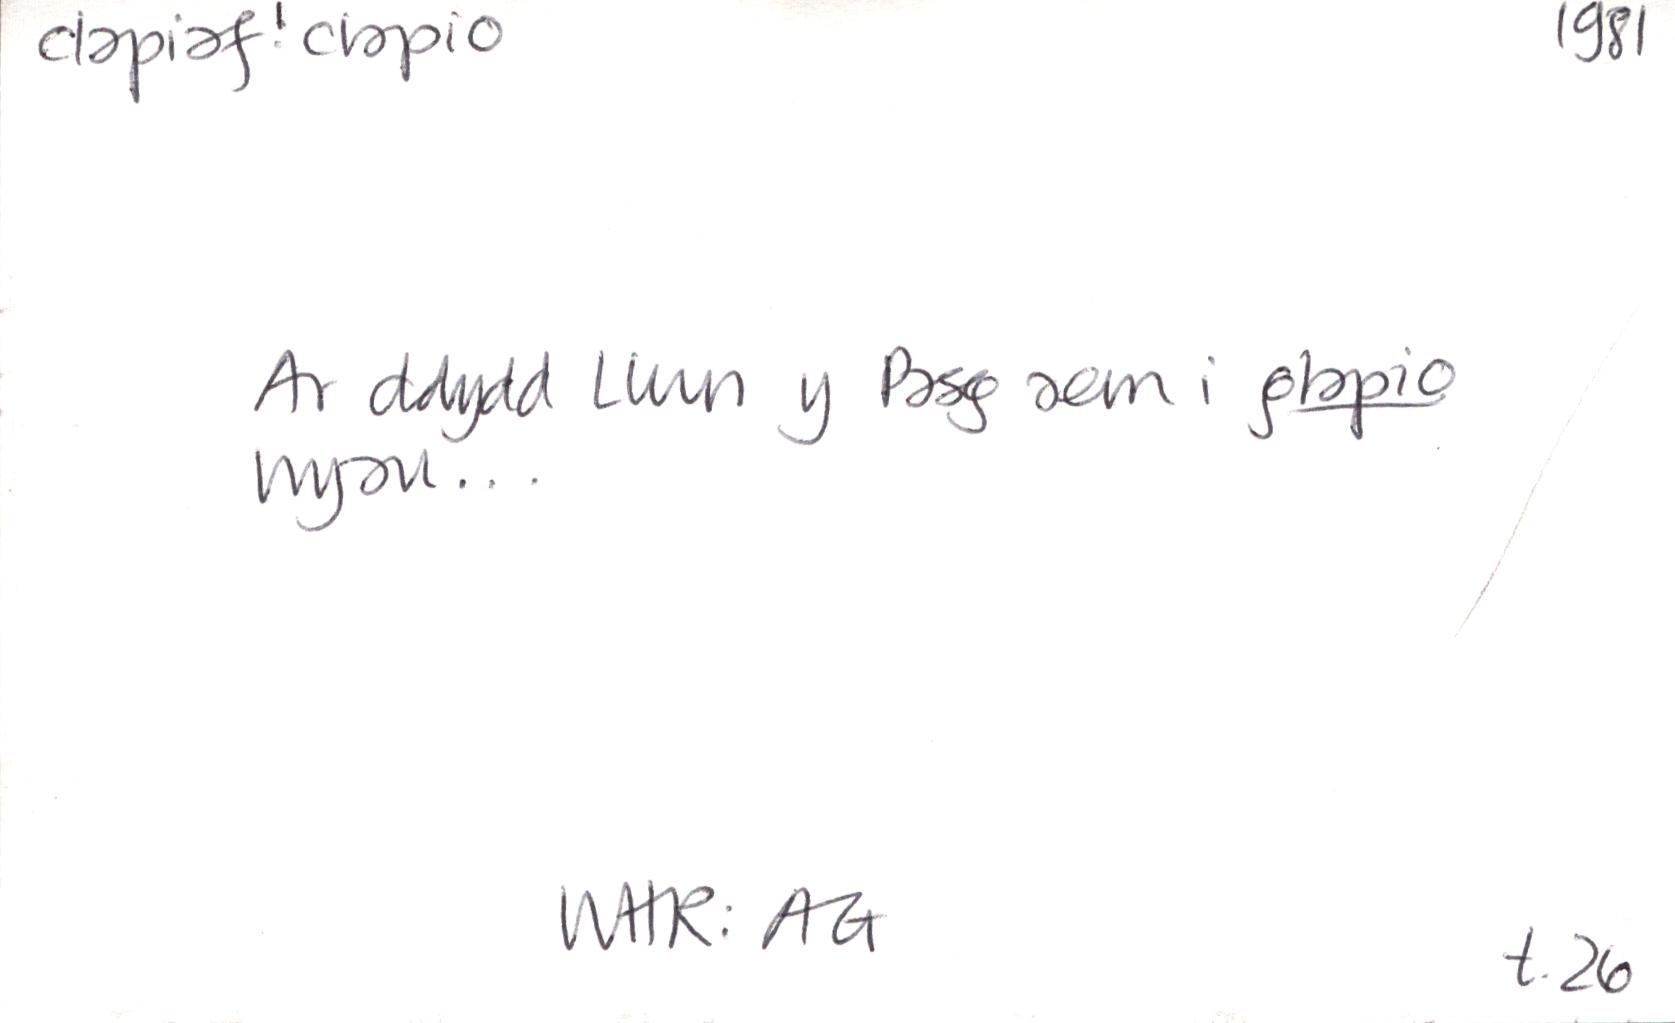 clapiaf: clapio 1981
Ar ddydd Llun y Pasg aem i glapio
wyau...
WHR: AG
t. 26